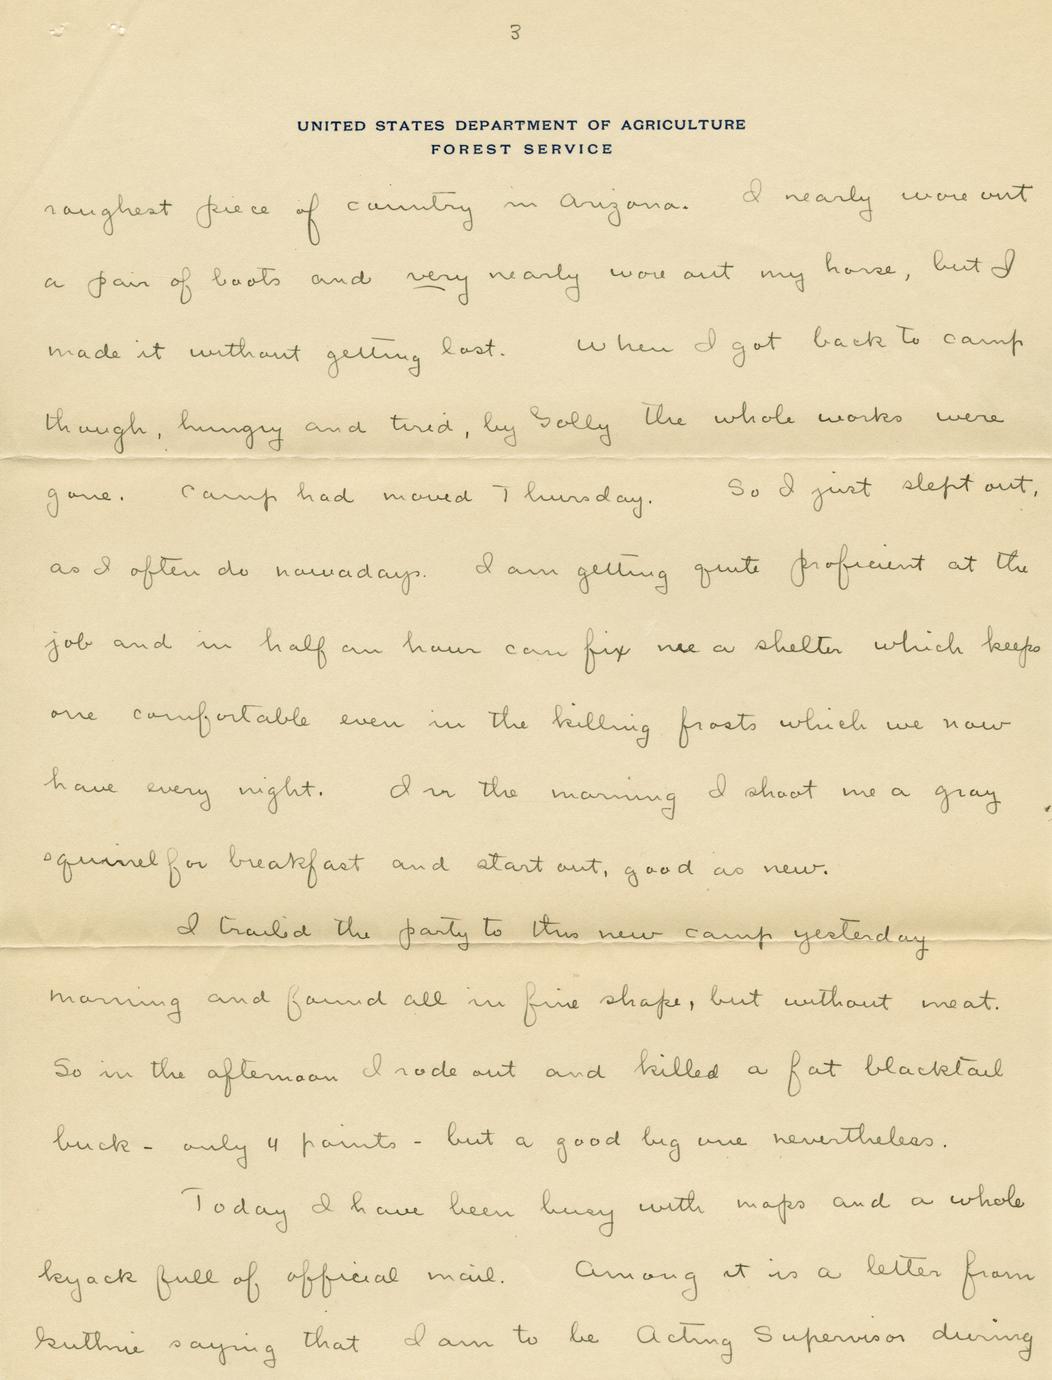 3
UNITED STATES DEPARTMENT OF AGRICULTURE
FOREST SERVICE
roughest piece of country in Arizona. I nearly wore out
a pair of boots and very nearly wore out my horse, but I
made it without getting lost. When I got back to camp
though, hungry and tired, by Golly the whole works were
gone. Camp had moved Thursday. So I just slept out,
as I often do nowadays. I am getting quite proficient at the
job and in half an hour can fix me a shelter which keeps
one comfortable even in the killing frosts which we now
have every night. In the morning I shoot me a gray
squirrel for breakfast and start out, good as new.
I trailed the party to this new camp yesterday
morning and found all in fine shape, but without meat.
So in the afternoon I rode out and killed a fat blacktail
buck - only 4 points - but a good big one nevertheless.
Today I have been busy with maps and a whole
kyack full of official mail. Among it is a letter from
Guthrie saying that I am to be Acting Supervisor during